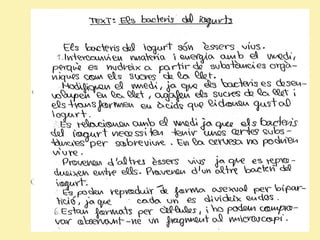 TEXT: Els bacteris del iogurt
Els bacteris del iogurt són èssers vius.
1. Intercanvien matèria i energia amb el medi,
perquè es nudreix a partir de substàncies orgà-
niques com els sucres de la llet.
Modifiquen el medi, ja que els bacteris es desen-
volupen en la llet, agafen els sucres de la llet i
els transformen en àcids que li donen gust al
iogurt.
Es relacionen amb el medi ja que els bacteris
del iogurt necessiten tenir unes certes subs-
tàncies per sobreviure. En la cervesa no podrien
viure.
Provenen d'altres èssers vius ja que es repro-
dueixen entre ells. Provenen d'un altre bacteri del
iogurt.
Es poden reproduir de forma asexual per bipar-
tició, ja que cada un es divideix en dos.
6. Estan formats per cèl·lules, i ho podem compro-
var observant-ne un fragment al microscopi.